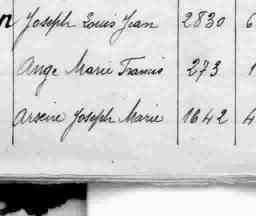 n Joseph Louis Jean 2830 6
Ange Marie Francis 273 1
Arsène Joseph Marie 1642 4